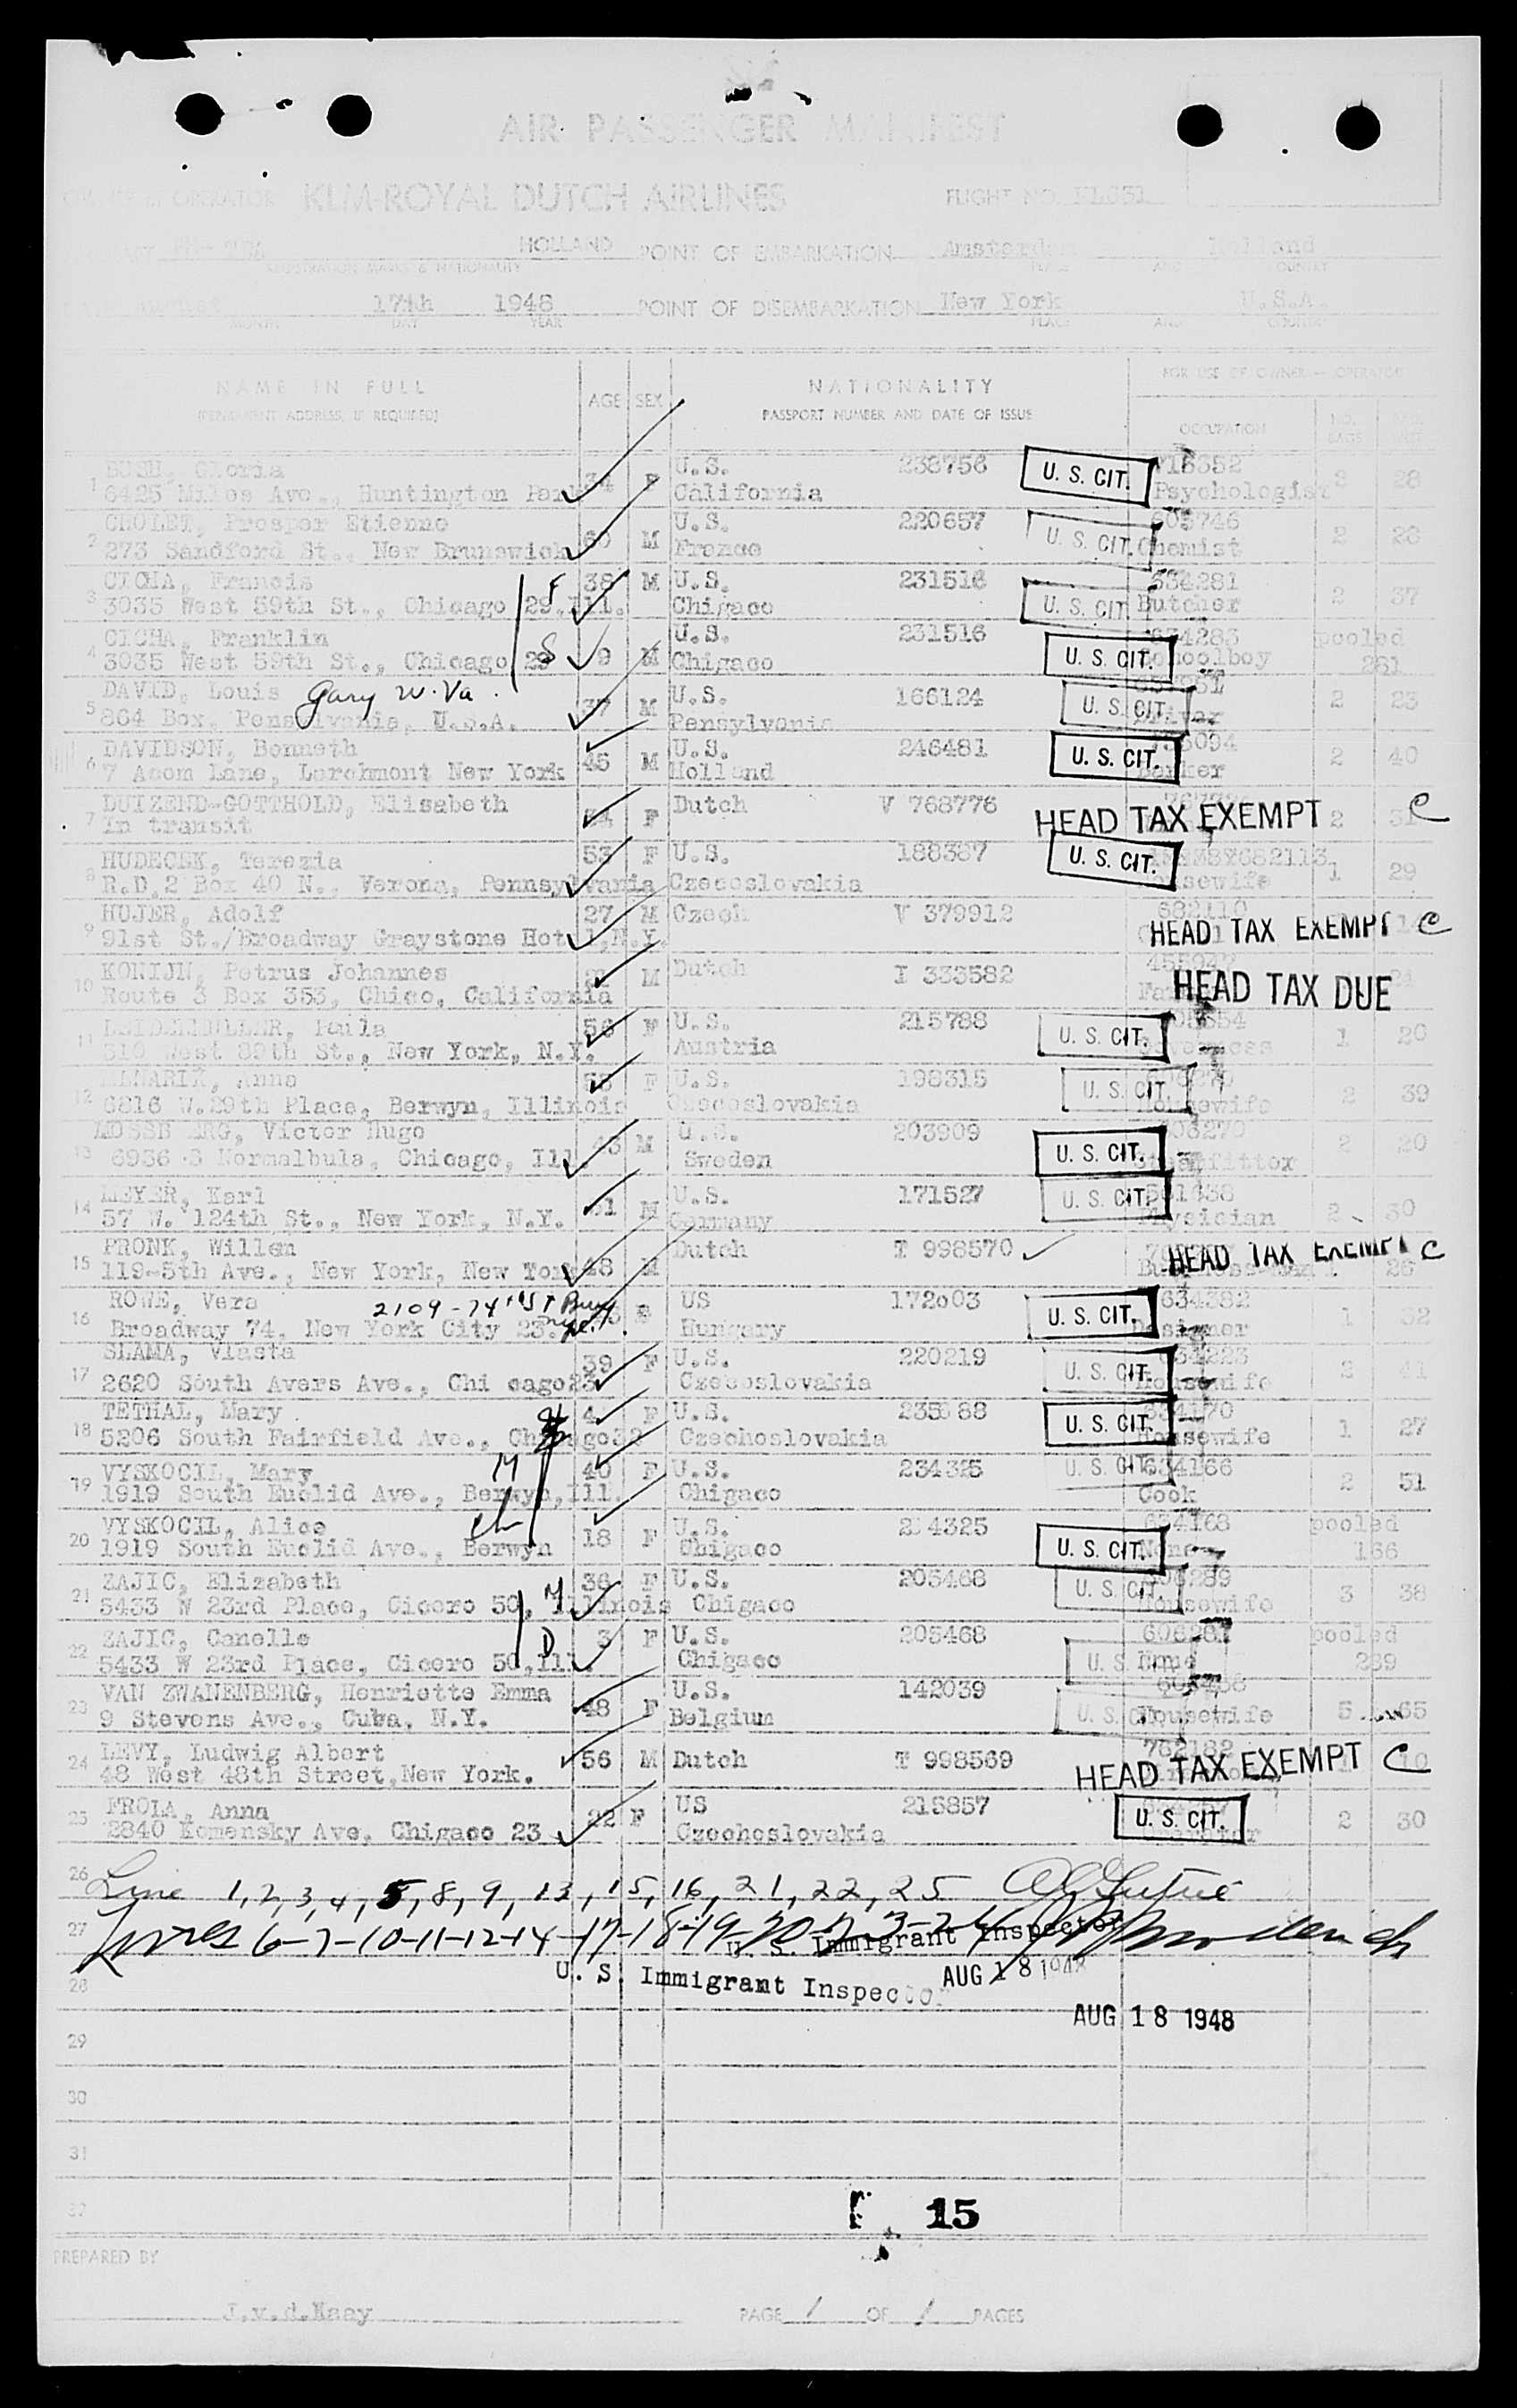 AIR PASSENGER MANIFEST
OWNER or OPERATOR KLM-ROYAL DUTCH AIRLINES FLIGHT NO. KL631
HOLLAND POINT OF EMBARKATION Amsterdam Holland
REGISTRATION MARKS & NATIONALITY PLACE AND COUNTRY
August 17th 1948 POINT OF DISEMBARKATION New York U.S.A.
MONTH DAY YEAR PLACE AND COUNTRY
NAME IN FULL AGE SEX NATIONALITY FOR USE OF OWNER — OPERATOR
(PERMANENT ADDRESS, IF REQUIRED) PASSPORT NUMBER AND DATE OF ISSUE OCCUPATION NO. BAGS
1 BUSH, Gloria F U.S. 238756 U. S. CIT. 3 28
6425 Miles Ave., Huntington Park California Psychologist
2 CHOLET, Prosper Etienne 60 M U.S. 220657 U. S. CIT. 605746 2 20
273 Sandford St., New Brunswick France Chemist
3 CICHA, Francis F 38 M U.S. 231516 U. S. CIT 634281 2 37
3035 West 59th St., Chicago 29.Ill. Chigaco Butcher
4 CICHA, Franklin S 9 M U.S. 231516 U. S. CIT. 634283 pooled
3035 West 59th St., Chicago 29 Chigaco Schoolboy 261
5 DAVID, Louis Gary W. Va. 37 M U.S. 166124 U. S. CIT. 2 23
864 Box, Pensylvania, U.S.A. Pensylvania Driver
6 DAVIDSON, Benneth 45 M U.S. 246481 U. S. CIT. 2 40
7 Acom Lane, Larchmont New York Holland
7 DUIZEND-GOTTHOLD, Elisabeth F Dutch V 768776 HEAD TAX EXEMPT C 2 31
In transit
8 HUDECEK, Terezia 53 F U.S. 188387 U. S. CIT. 1 29
R.D.2 Box 40 N., Verona, Pennsylvania Czecoslovakia Housewife
9 HUJER, Adolf 27 M Czech V 379912 682110 HEAD TAX EXEMPT C
91st St./Broadway Graystone Hotel,N.Y.
10 KONIJN, Petrus Johannes M Dutch I 333582 HEAD TAX DUE
Route 3 Box 353, Chico, California
11 Paula 56 F U.S. 215788 U. S. CIT. 1 20
310 West 89th St., New York, N.Y. Austria Governess
12 Anna F U.S. 198315 U. S. CIT 2 39
6816 W.29th Place, Berwyn, Illinois Czecoslovakia Housewife
13 Victor Hugo 43 M U.S. 203909 U. S. CIT. 2 20
6936 S Normalbula, Chicago, Ill. Sweden Steamfitter
14 MEYER, Karl 51 M U.S. 171527 U. S. CIT. 2 30
57 W. 124th St., New York, N.Y. Germany Physician
15 PRONK, Willem 48 M Dutch T 998570 HEAD TAX EXEMPT C 26
119-5th Ave., New York, New York
16 ROWE, Vera 2109-74th ST US 172003 U. S. CIT. 634382 1 32
Broadway 74, New York City 23. Hungary Designer
17 SLAMA, Vlasta 39 F U.S. 220219 U. S. CIT. 634223 2 41
2620 South Avers Ave., Chi cago23 Czecoslovakia Housewife
18 TETHAL, Mary F U.S. U. S. CIT. 634170 1 27
5206 South Fairfield Ave., Chicago32 Czechoslovakia Housewife
19 VYSKOCIL, Mary M 40 F U.S. 234325 U. S. CIT 634166 2 51
1919 South Euclid Ave., Berwyn,Ill. Chigaco Cook
20 VYSKOCIL, Alice ch 18 F U.S. 234325 U. S. CIT. 634168 pooled
1919 South Euclid Ave., Berwyn Chigaco None 166
21 ZAJIC, Elizabeth M 36 F U.S. 205468 U. S. CIT. 606289 3 38
5433 W 23rd Place, Cicero 50, Illinois Chigaco Housewife
22 ZAJIC, Canelle D 3 F U.S. 205468 U. S. 606287 pooled
5433 W 23rd Place, Cicero 50,Ill. Chigaco 239
23 VAN ZWANENBERG, Henriette Emma 48 F U.S. 142039 U. S. CIT 5 65
9 Stevens Ave., Cuba, N.Y. Belgium Housewife
24 LEVY, Ludwig Albert 56 M Dutch T 998569 762182 HEAD TAX EXEMPT C
48 West 48th Street,New York.
25 FROLA, Anna 22 F US 215857 U. S. CIT. 2 30
2840 Komensky Ave, Chigaco 23 Czechoslovakia
26 Line 1, 2, 3, 4, 5, 8, 9, 13, 15, 16, 21, 22, 25
27 Lines 6-7-10-11-12-14-17-18-19-20-23-24
U. S. Immigrant Inspector
28 U. S. Immigrant Inspector AUG 18 1948
AUG 18 1948
29
30
31
32
15
PREPARED BY
J.v.d.Haay PAGE 1 OF 1 PAGES